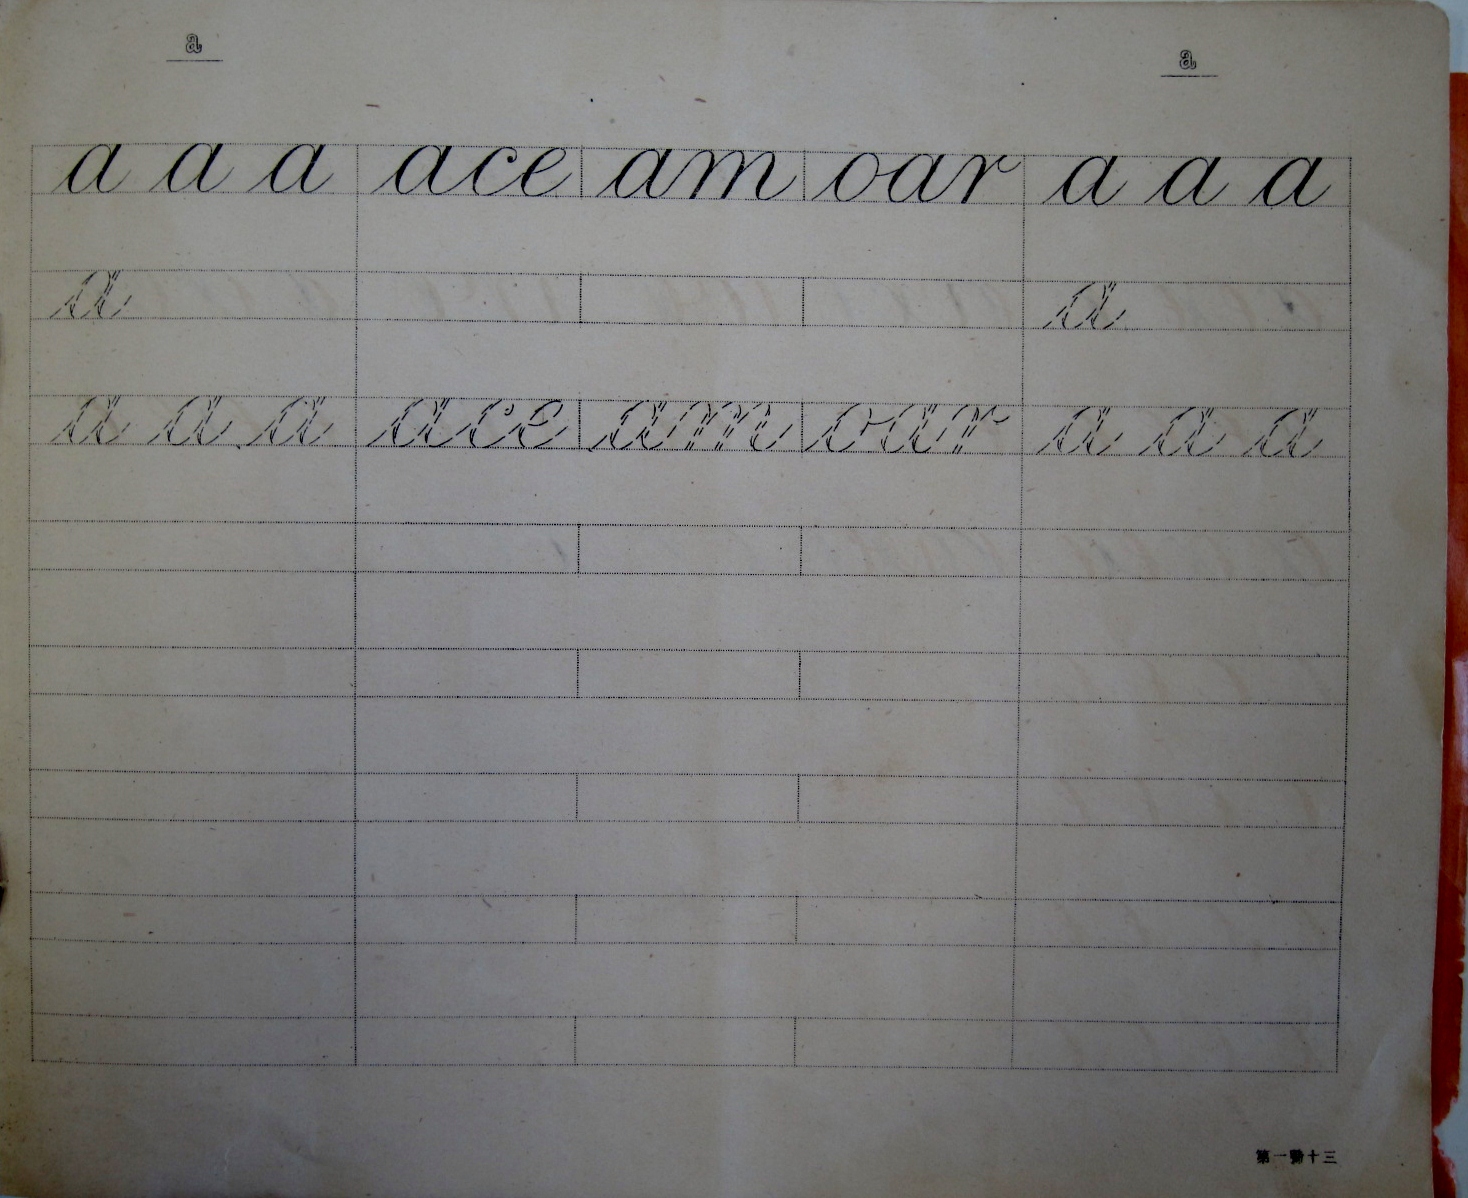 a a
a a a ace am oar a a a
a a
a a a ace am oar a a a